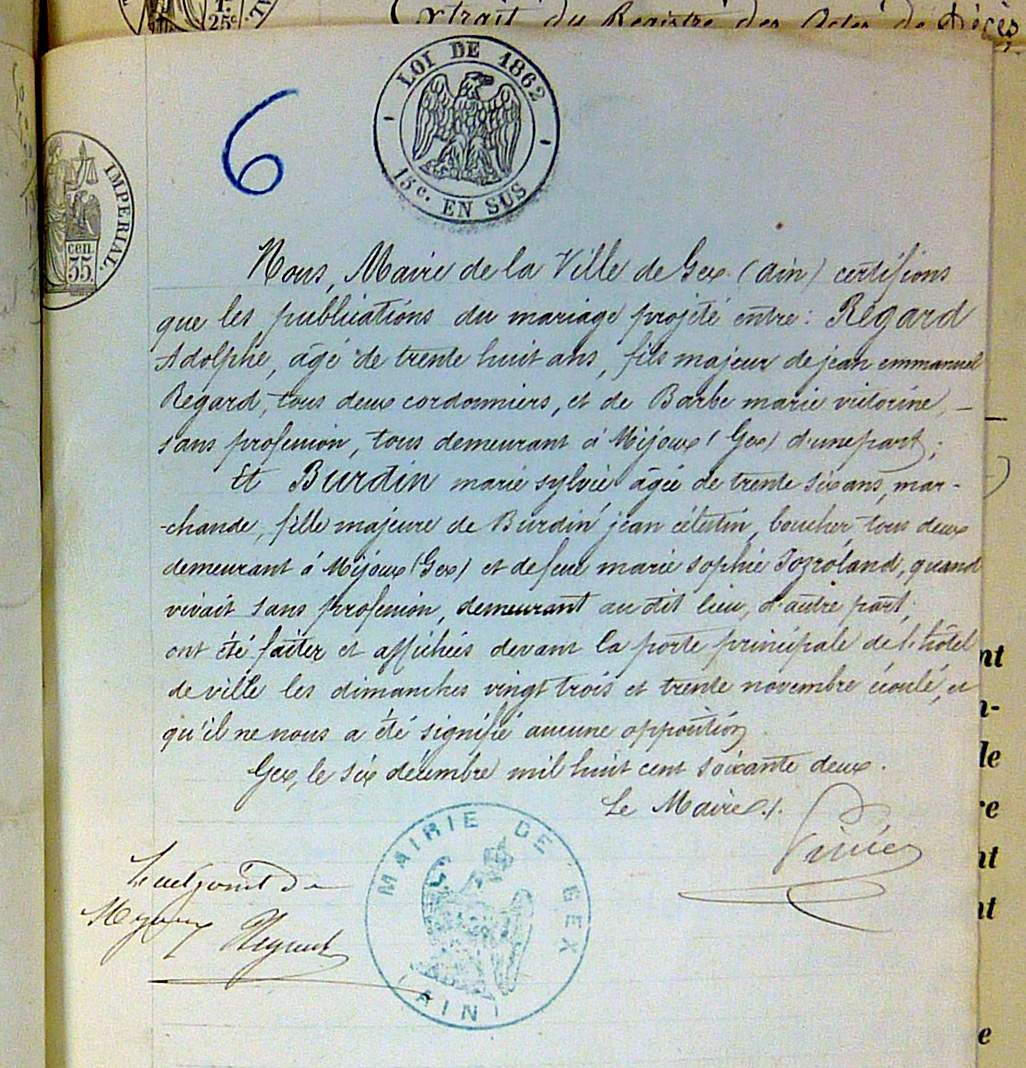 1.
25c
Extrait du Registre des Actes de Décès
LOI DE 1862
15c. EN SUS
6
IMPERIAL.
cen.
35
Nous, Maire de la Ville de Gex (Ain) certifions
que les publications du mariage projeté entre : Regard
Adolphe, âgé de trente huit ans, fils majeur de jean emmanuel
Regard, tous deux cordonniers, et de Barbe marie victorine, –
sans profession, tous demeurant à Mijoux (Gex) d'une part ;
Et Burdin marie sylvie âgée de trente six ans, mar-
-chande, fille majeure de Burdin jean célestin, boucher tous deux
demeurant à Mijoux (Gex) et de feue marie sophie, quand
vivait sans profession, demeurant au dit lieu, d'autre part,
ont été faites et affichées devant la porte principale de l'hôtel
de ville les dimanches vingt trois et trente novembre écoulé, et
qu'il ne nous a été signifié aucune opposition.
Gex, le six décembre mil huit cent soixante deux.
Le Maire
MAIRIE DE GEX
(AIN)
nt
n-
le
re
nt
nt
e